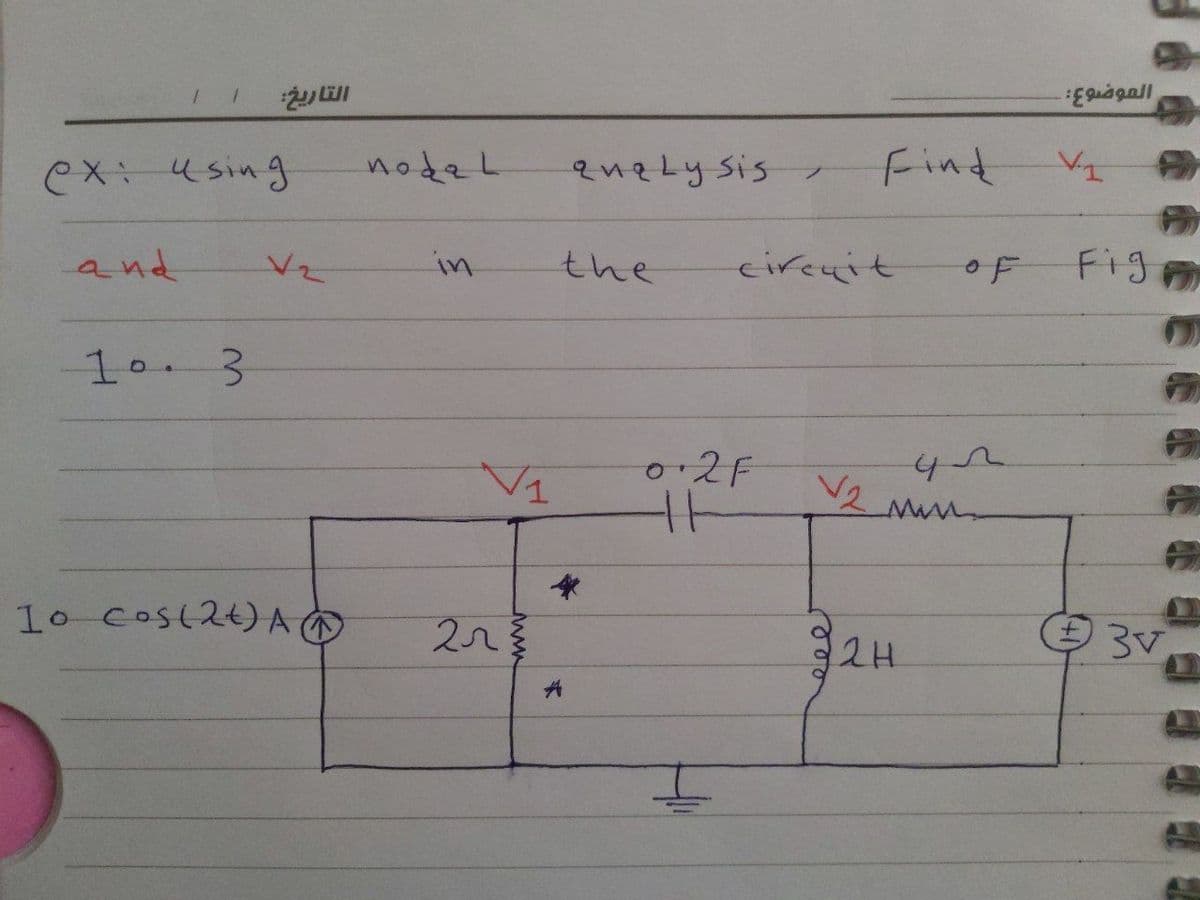 الموضوع: التاريخ: / /
ex: using nodal analysis, Find V1
and V2 in the circuit of Fig
10.3
V1 0.2F V2 4Ω
10 cos(2t) A 2Ω 2H + 3V